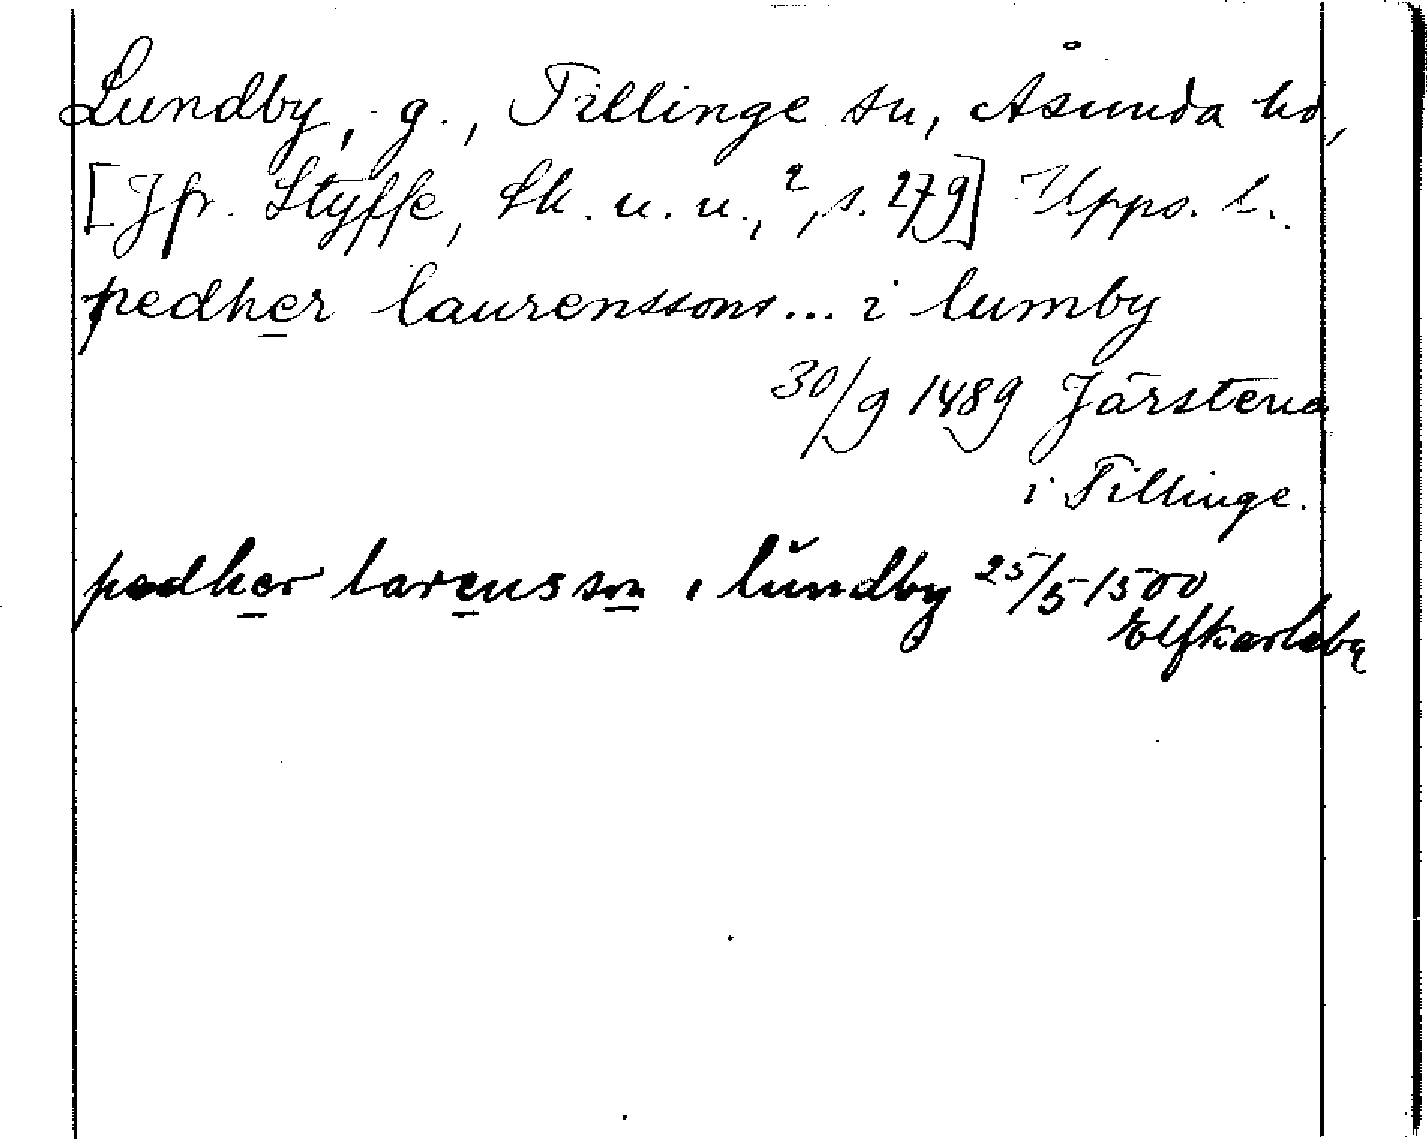 Lundby, g., Tillinge sn, Åsunda hd,
[Jfr. Styffe, Sk. u. u.,², s. 279] Upps. l.
pedher laurenssons... i lumby
30/9 1489 Järstena
i Tillinge.
pedher larensson i lundby 25/5 1500
Elfkarleby